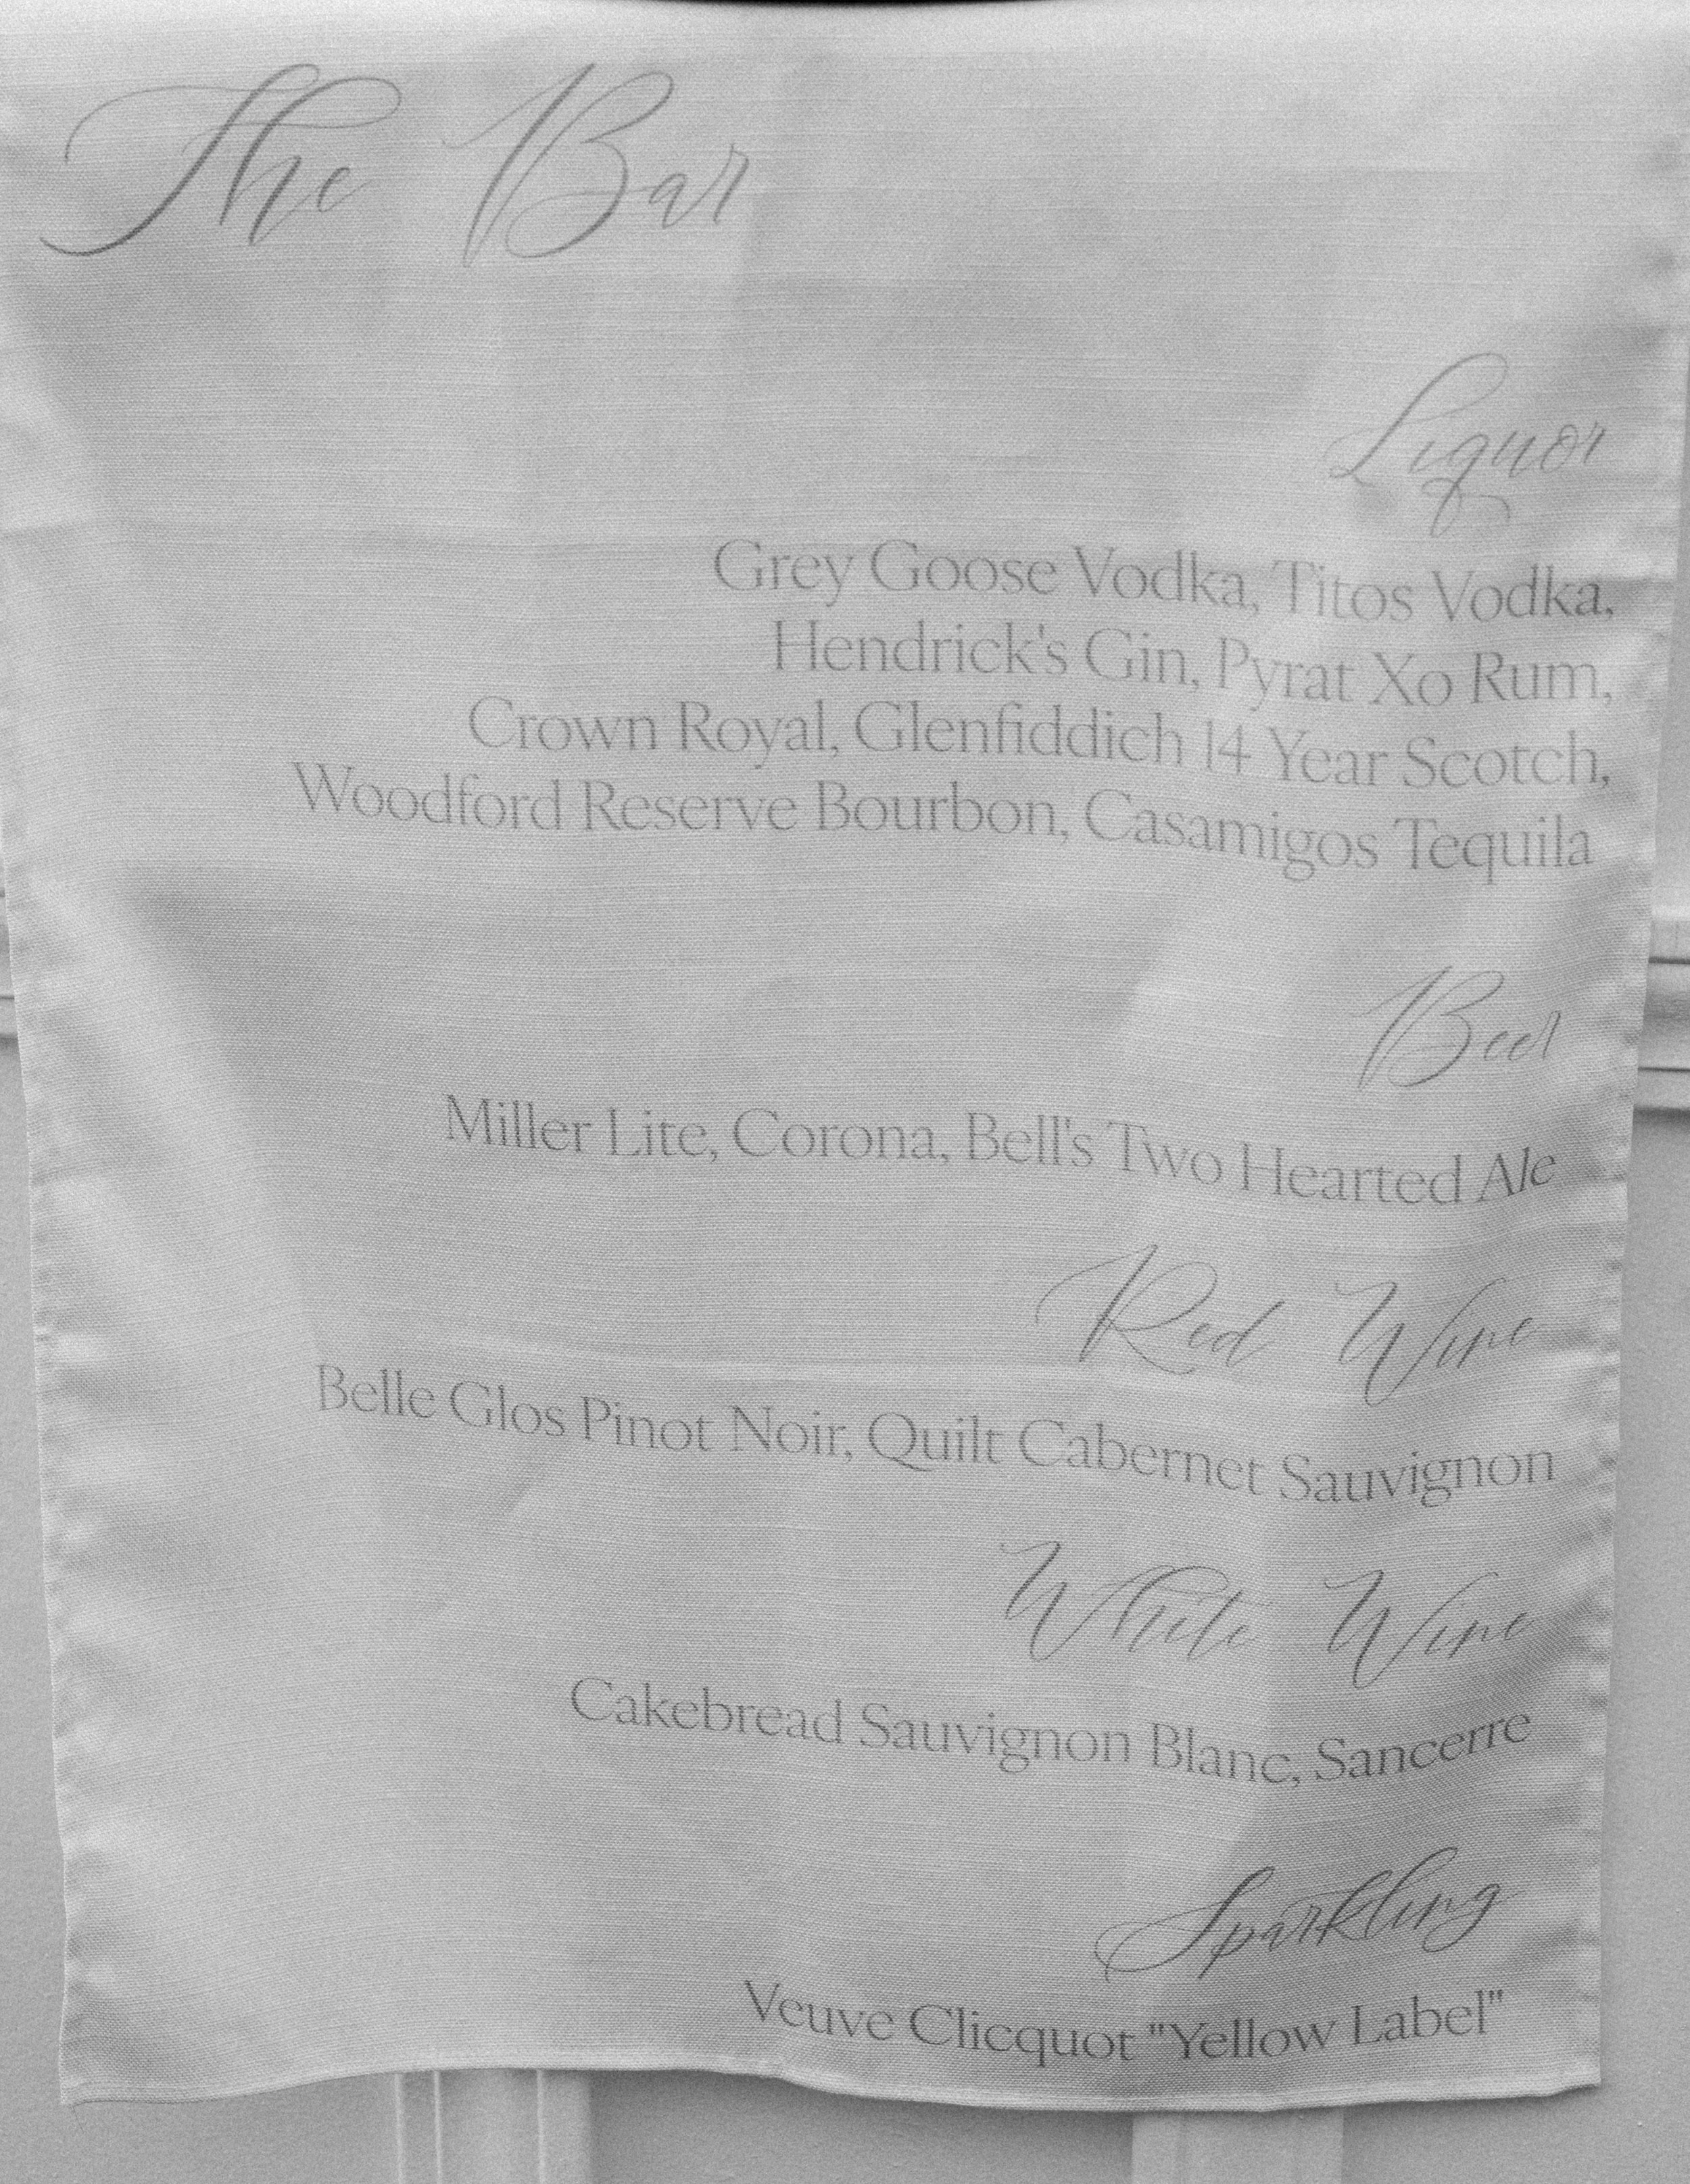 The Bar
Liquor
Grey Goose Vodka, Titos Vodka,
Hendrick's Gin, Pyrat Xo Rum,
Crown Royal, Glenfiddich 14 Year Scotch,
Woodford Reserve Bourbon, Casamigos Tequila
Beer
Miller Lite, Corona, Bell's Two Hearted Ale
Red Wine
Belle Glos Pinot Noir, Quilt Cabernet Sauvignon
White Wine
Cakebread Sauvignon Blanc, Sancerre
Sparkling
Veuve Clicquot "Yellow Label"